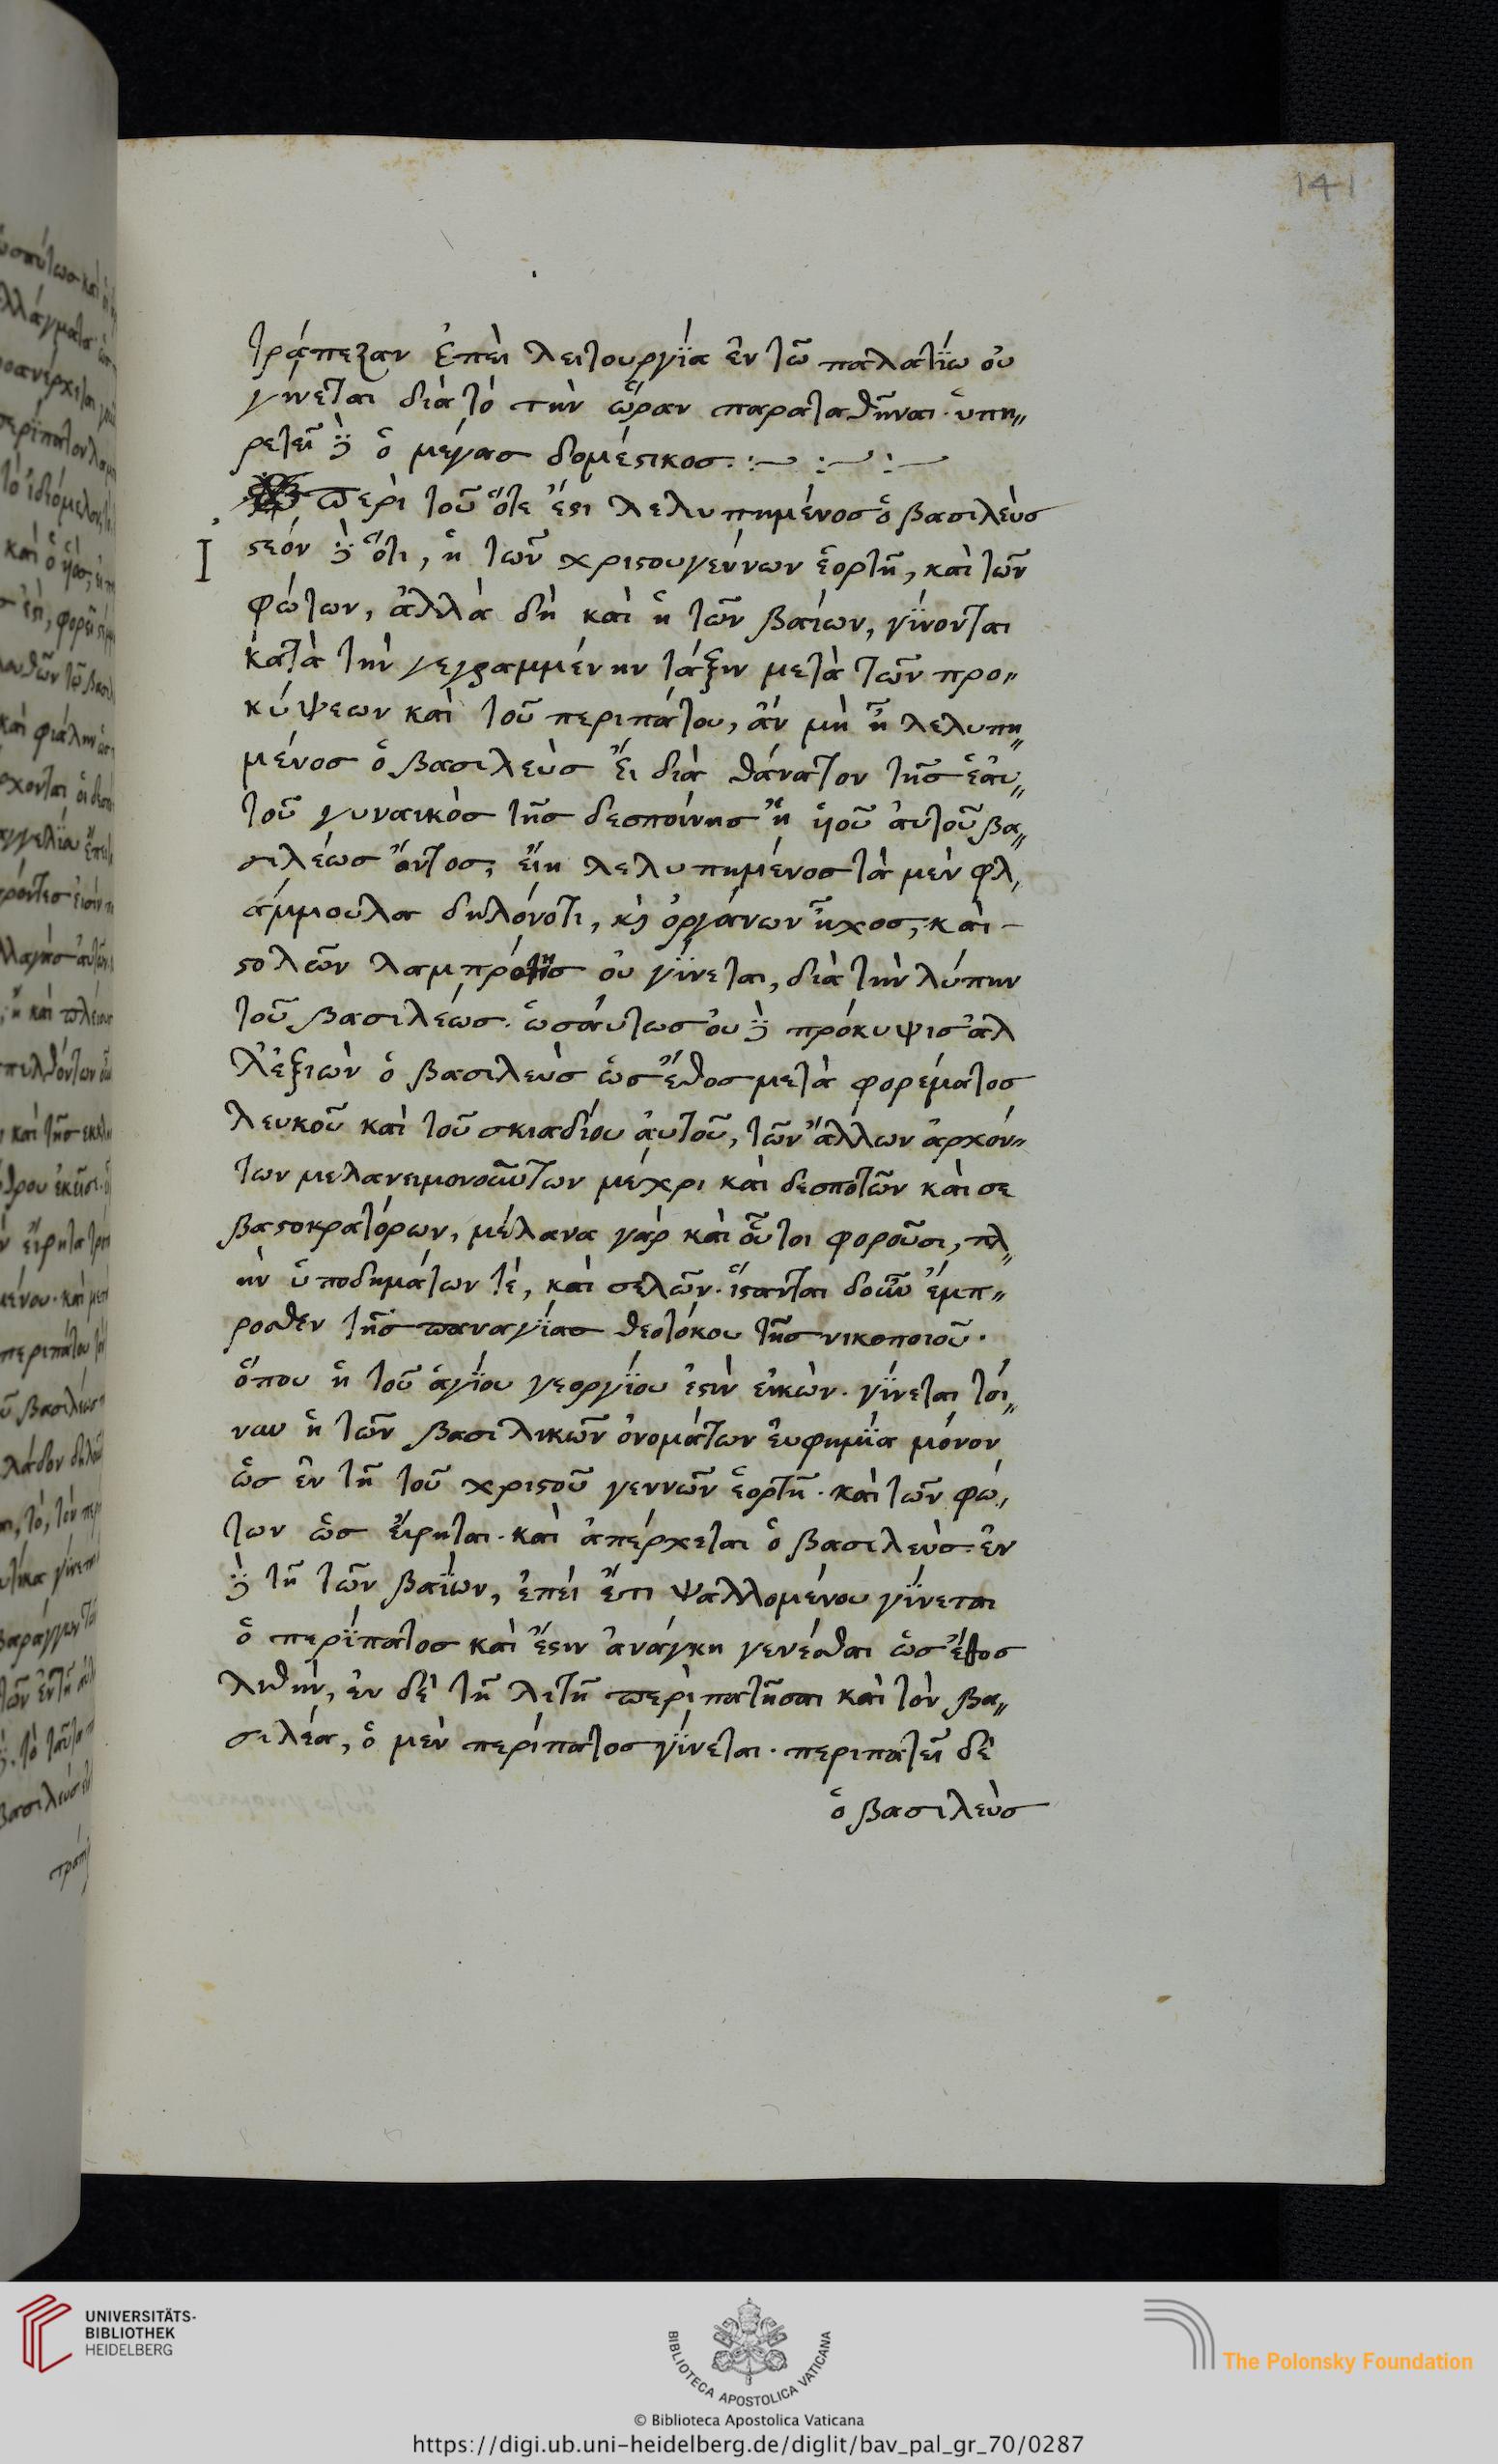 141
τράπεζαν ἐπεὶ λειτουργΐα ἐν τῶ παλατΐω οὐ
γίνεται διὰ τὸ τὴν ὥραν παραταθῆναι· ὑπη„
ρετεῖ δὲ ὁ μέγας δομέστικος. :~ :~ :~
περὶ τοῦ ὅτε ἔστι λελυπημένος ὁ βασιλεὺς
Ἰστέον δὲ ὅτι, ἡ τῶν χριστουγέννων ἑορτῆ, καὶ τῶν
φώτων, ἀλλὰ δὴ καὶ ἡ τῶν βαΐων, γΐνονται
κατὰ τὴν γεγραμμένην τάξιν μετὰ τῶν προ„
κύψεων καὶ τοῦ περιπάτου, ἂν μὴ ἦ λελυπη„
μένος ὁ βασιλεὺς εἴ διὰ θάνατον τῆς ἑαυ„
τοῦ γυναικὸς τῆς δεσποίνης ἢ υἱοῦ αὐτοῦ βα„
σιλέως ὄντος, εἴη λελυπημένος τὰ μὲν φλ,
άμμουλα δηλόνοτι, κὶ ὀργάνων ἦχος, καὶ –
στολῶν λαμπρότης οὐ γΐνεται, διὰ τὴν λύπην
τοῦ βασιλέως. ὡσαύτως οὐ δὲ πρόκυψις ἀλ
λ' ἐξιὼν ὁ βασιλεὺς ὡς ἔθος μετὰ φορέματος
λευκοῦ καὶ τοῦ σκιαδίου αὐτοῦ, τῶν ἄλλων ἀρχόν„
των μελανειμονούντων μέχρι καὶ δεσποτῶν καὶ σε
βαστοκρατόρων, μέλανα γὰρ καὶ οὗτοι φοροῦσι, πλ„
ὴν ὑποδημάτων τέ, καὶ σελῶν. ἵστανται δοῦν ἔμπ„
ροσθεν τῆς παναγΐας θεοτόκου τῆς νικοποιοῦ.
ὅπου ἡ τοῦ ἁγΐου γεοργΐου ἐστὶν εἰκών. γΐνεται τοί„
νυν ἡ τῶν βασιλικῶν ὀνομάτων εὐφημΐα μόνον
ὡς ἐν τῆ τοῦ χριστοῦ γεννῶν ἑορτῆ. καὶ τῶν φώ,
των ὡς εἴρηται. καὶ ἀπέρχεται ὁ βασιλεὺς ἐν
δὲ τῆ τῶν βαΐων, ἐπεὶ ἔτι ψαλλομένου γΐνεται
ὁ περΐπατος καὶ ἔστιν ἀνάγκη γενέσθαι ὡς ἔθος
λιτὴν, ἐν δὲ τῆ λιτῆ περὶπατῆσαι καὶ τὸν βα„
σιλέα, ὁ μὲν περίπατος γΐνεται. περιπατεῖ δὲ
ὁ βασιλεὺς
UNIVERSITÄTS-
BIBLIOTHEK
HEIDELBERG
BIBLIOTECA APOSTOLICA VATICANA
The Polonsky Foundation
© Biblioteca Apostolica Vaticana
https://digi.ub.uni-heidelberg.de/diglit/bav_pal_gr_70/0287